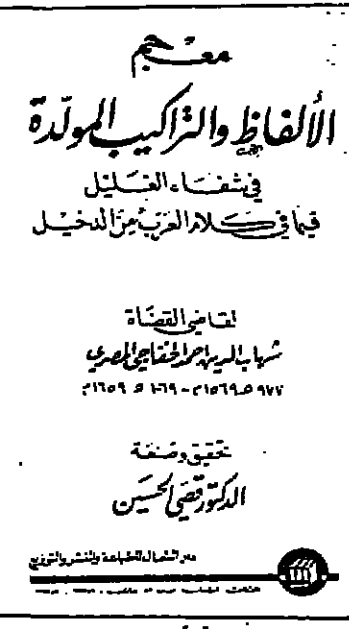 معجم
الألفاظ والتراكيب المولدة
في شفاء الغليل
فيما في كلام العرب من الدخيل
لقاضي القضاة
شهاب الدين احمد الخفاجي المصري
٩٧٧ هـ ١٥٦٩م - ١٠٦٩ هـ ١٦٥٩م
تحقيق وصنعة
الدكتور قصي الحسين
دار الشمال للطباعة والنشر والتوزيع